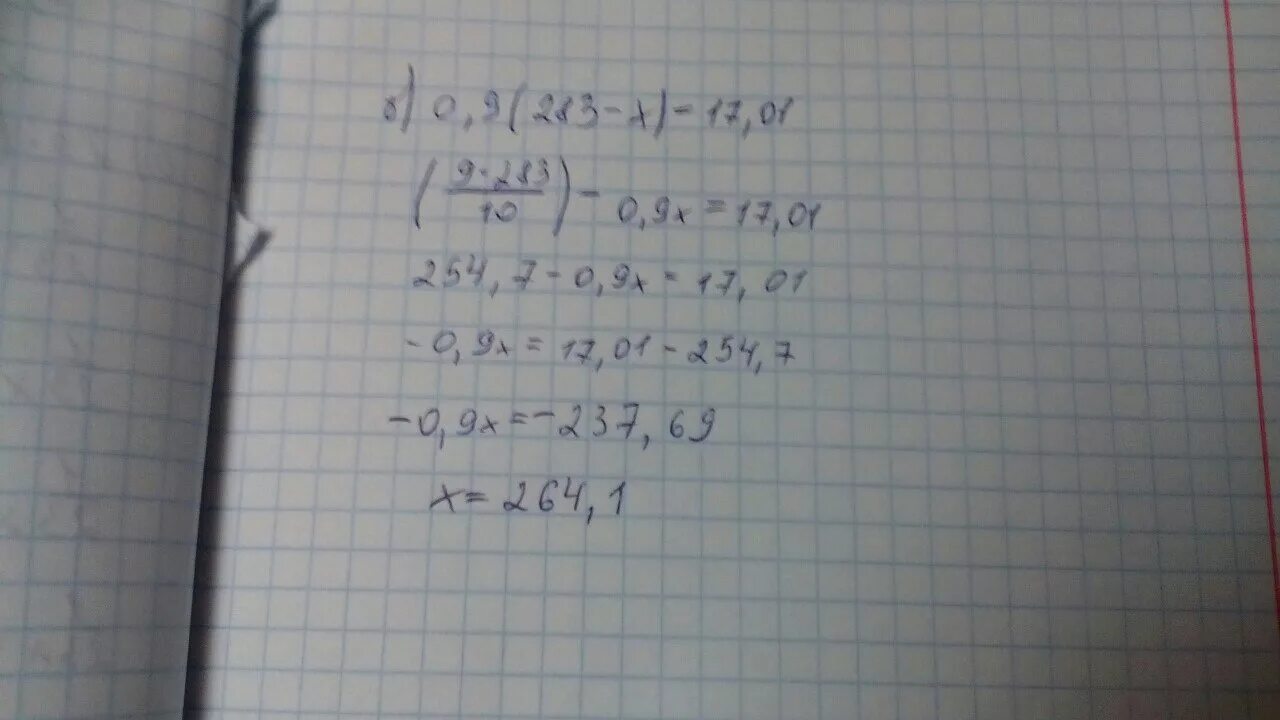 б) 0,9(283-x)=17,01
(9·283/10)-0,9x=17,01
254,7-0,9x=17,01
-0,9x=17,01-254,7
-0,9x=-237,69
x=264,1